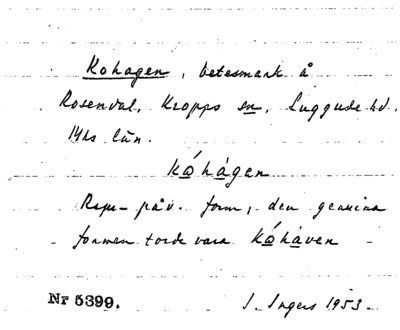 Kohagen, betesmark å
Rosendal, Kropps sn, Luggude hd.
Mhs län.
kóhágen
Rspr-påv. form, den genuina
formen torde vara kóháven
Nr 5399.
I. Ingers 1953